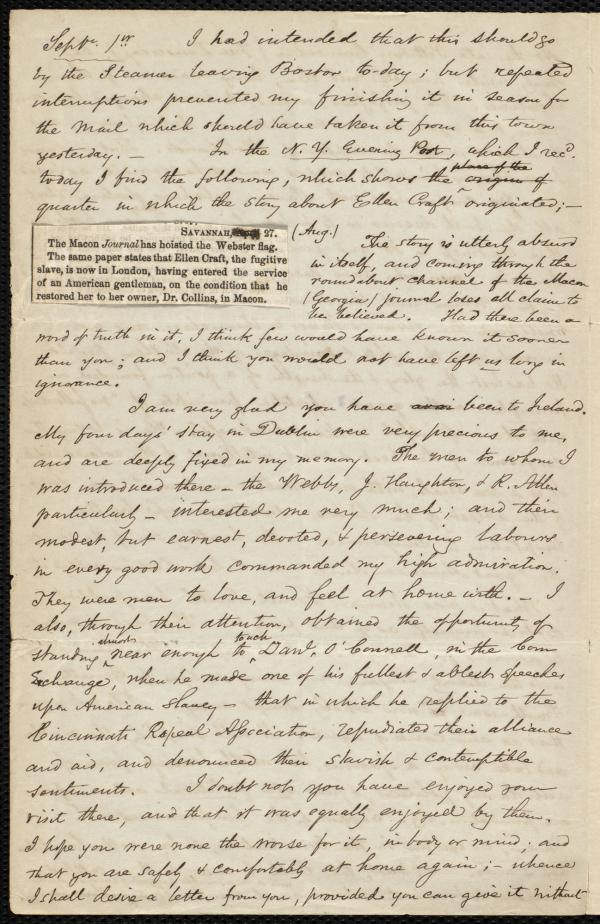 Septr. 1st. I had intended that this should go
by the Steamer leaving Boston to-day; but repeated
interruptions prevented my finishing it in season for
the mail which should have taken it from this town
yesterday. — In the N. Y. Evening Post, which I recd.
today I find the following, which shows the place of the origin of
quarter in which the story about Ellen Craft originated; —
SAVANNAH, 27.
The Macon Journal has hoisted the Webster flag.
The same paper states that Ellen Craft, the fugitive
slave, is now in London, having entered the service
of an American gentleman, on the condition that he
restored her to her owner, Dr. Collins, in Macon.
(Aug.)
The story is utterly absurd
in itself, and coming through the
roundabout channel of the Macon
(Georgia) journal loses all claim to
be believed. Had there been a
word of truth in it, I think few would have known it sooner
than you; and I think you would not have left us long in
ignorance.
I am very glad you have been to Ireland.
My four days' stay in Dublin were very precious to me,
and are deeply fixed in my memory. The men to whom I
was introduced there — the Webbs, J. Haughton, & R. Allen
particularly — interested me very much; and their
modest, but earnest, devoted, & persevering labours
in every good work commanded my high admiration.
They were men to love, and feel at home with. — I
also, through their attention, obtained the opportunity of
standing almost near enough to touch Danl. O'Connell, in the Corn
Exchange, when he made one of his fullest & ablest speeches
upon American Slavery — that in which he replied to the
Cincinnati Repeal Association, repudiated their alliance
and aid, and denounced their slavish & contemptible
sentiments. I doubt not you have enjoyed your
visit there, and that it was equally enjoyed by them.
I hope you were none the worse for it, in body or mind; and
that you are safely & comfortably at home again; — whence
I shall desire a letter from you, provided you can give it without